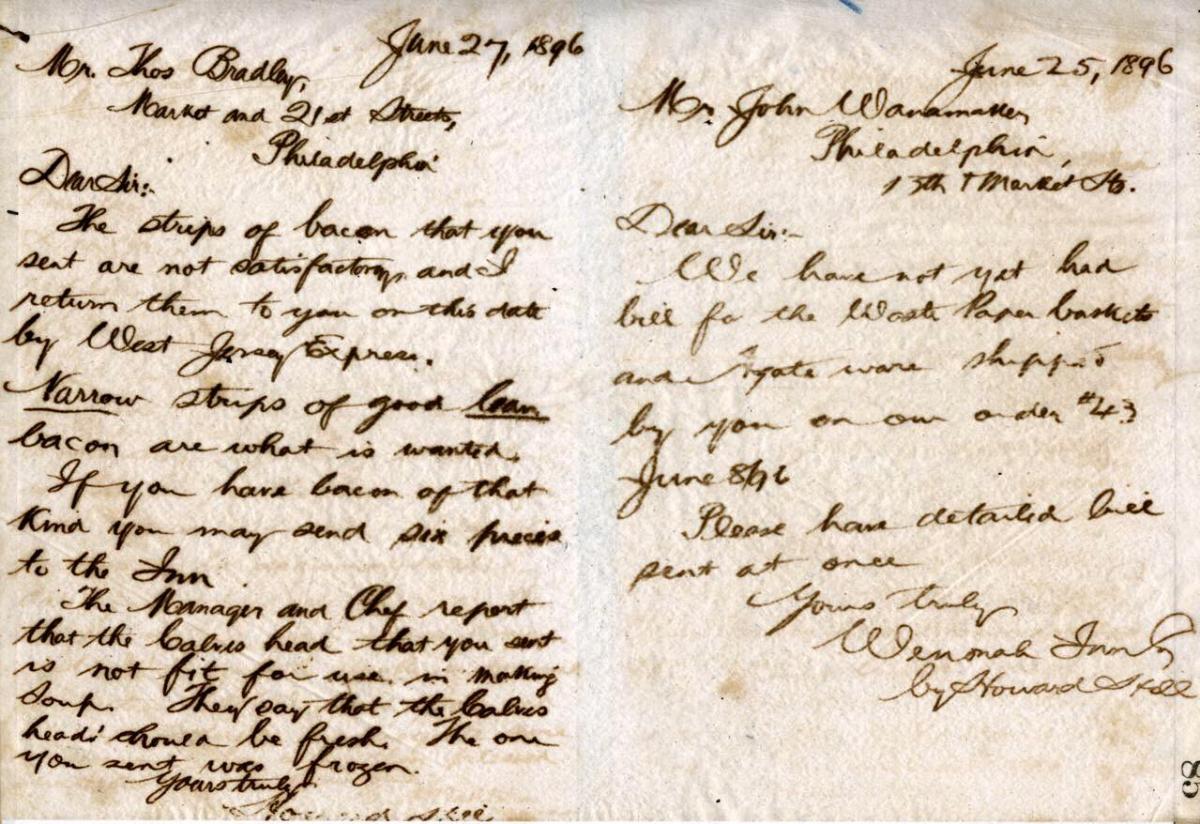 June 27, 1896
Mr. Thos Bradley,
Market and 21st Streets,
Philadelphia
Dear Sir:-
The strips of bacon that you
sent are not satisfactory, and I
return them to you on this date
by West Jersey Express.
Narrow strips of good lean
bacon are what is wanted.
If you have bacon of that
kind you may send six pieces
to the Inn
The Manager and Chef report
that the Calves head that you sent
is not fit for use in making
Soup. They say that the Calves
heads should be fresh. The one
you sent was frozen.
Yours truly
Howard
June 25, 1896
Mr John Wanamaker,
Philadelphia,
13th & Market Sts.
Dear Sir:-
We have not yet had
bill for the Waste Paper baskets
and Agate ware shipped
by you on our order #43
June 8/96
Please have detailed bill
sent at once
Yours truly
Wenonah Inn
by Howard
85